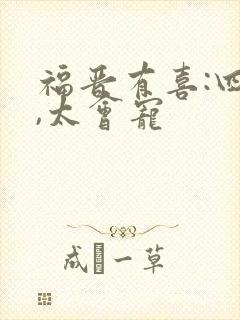 福晋有喜:四
,太会宠
成一草